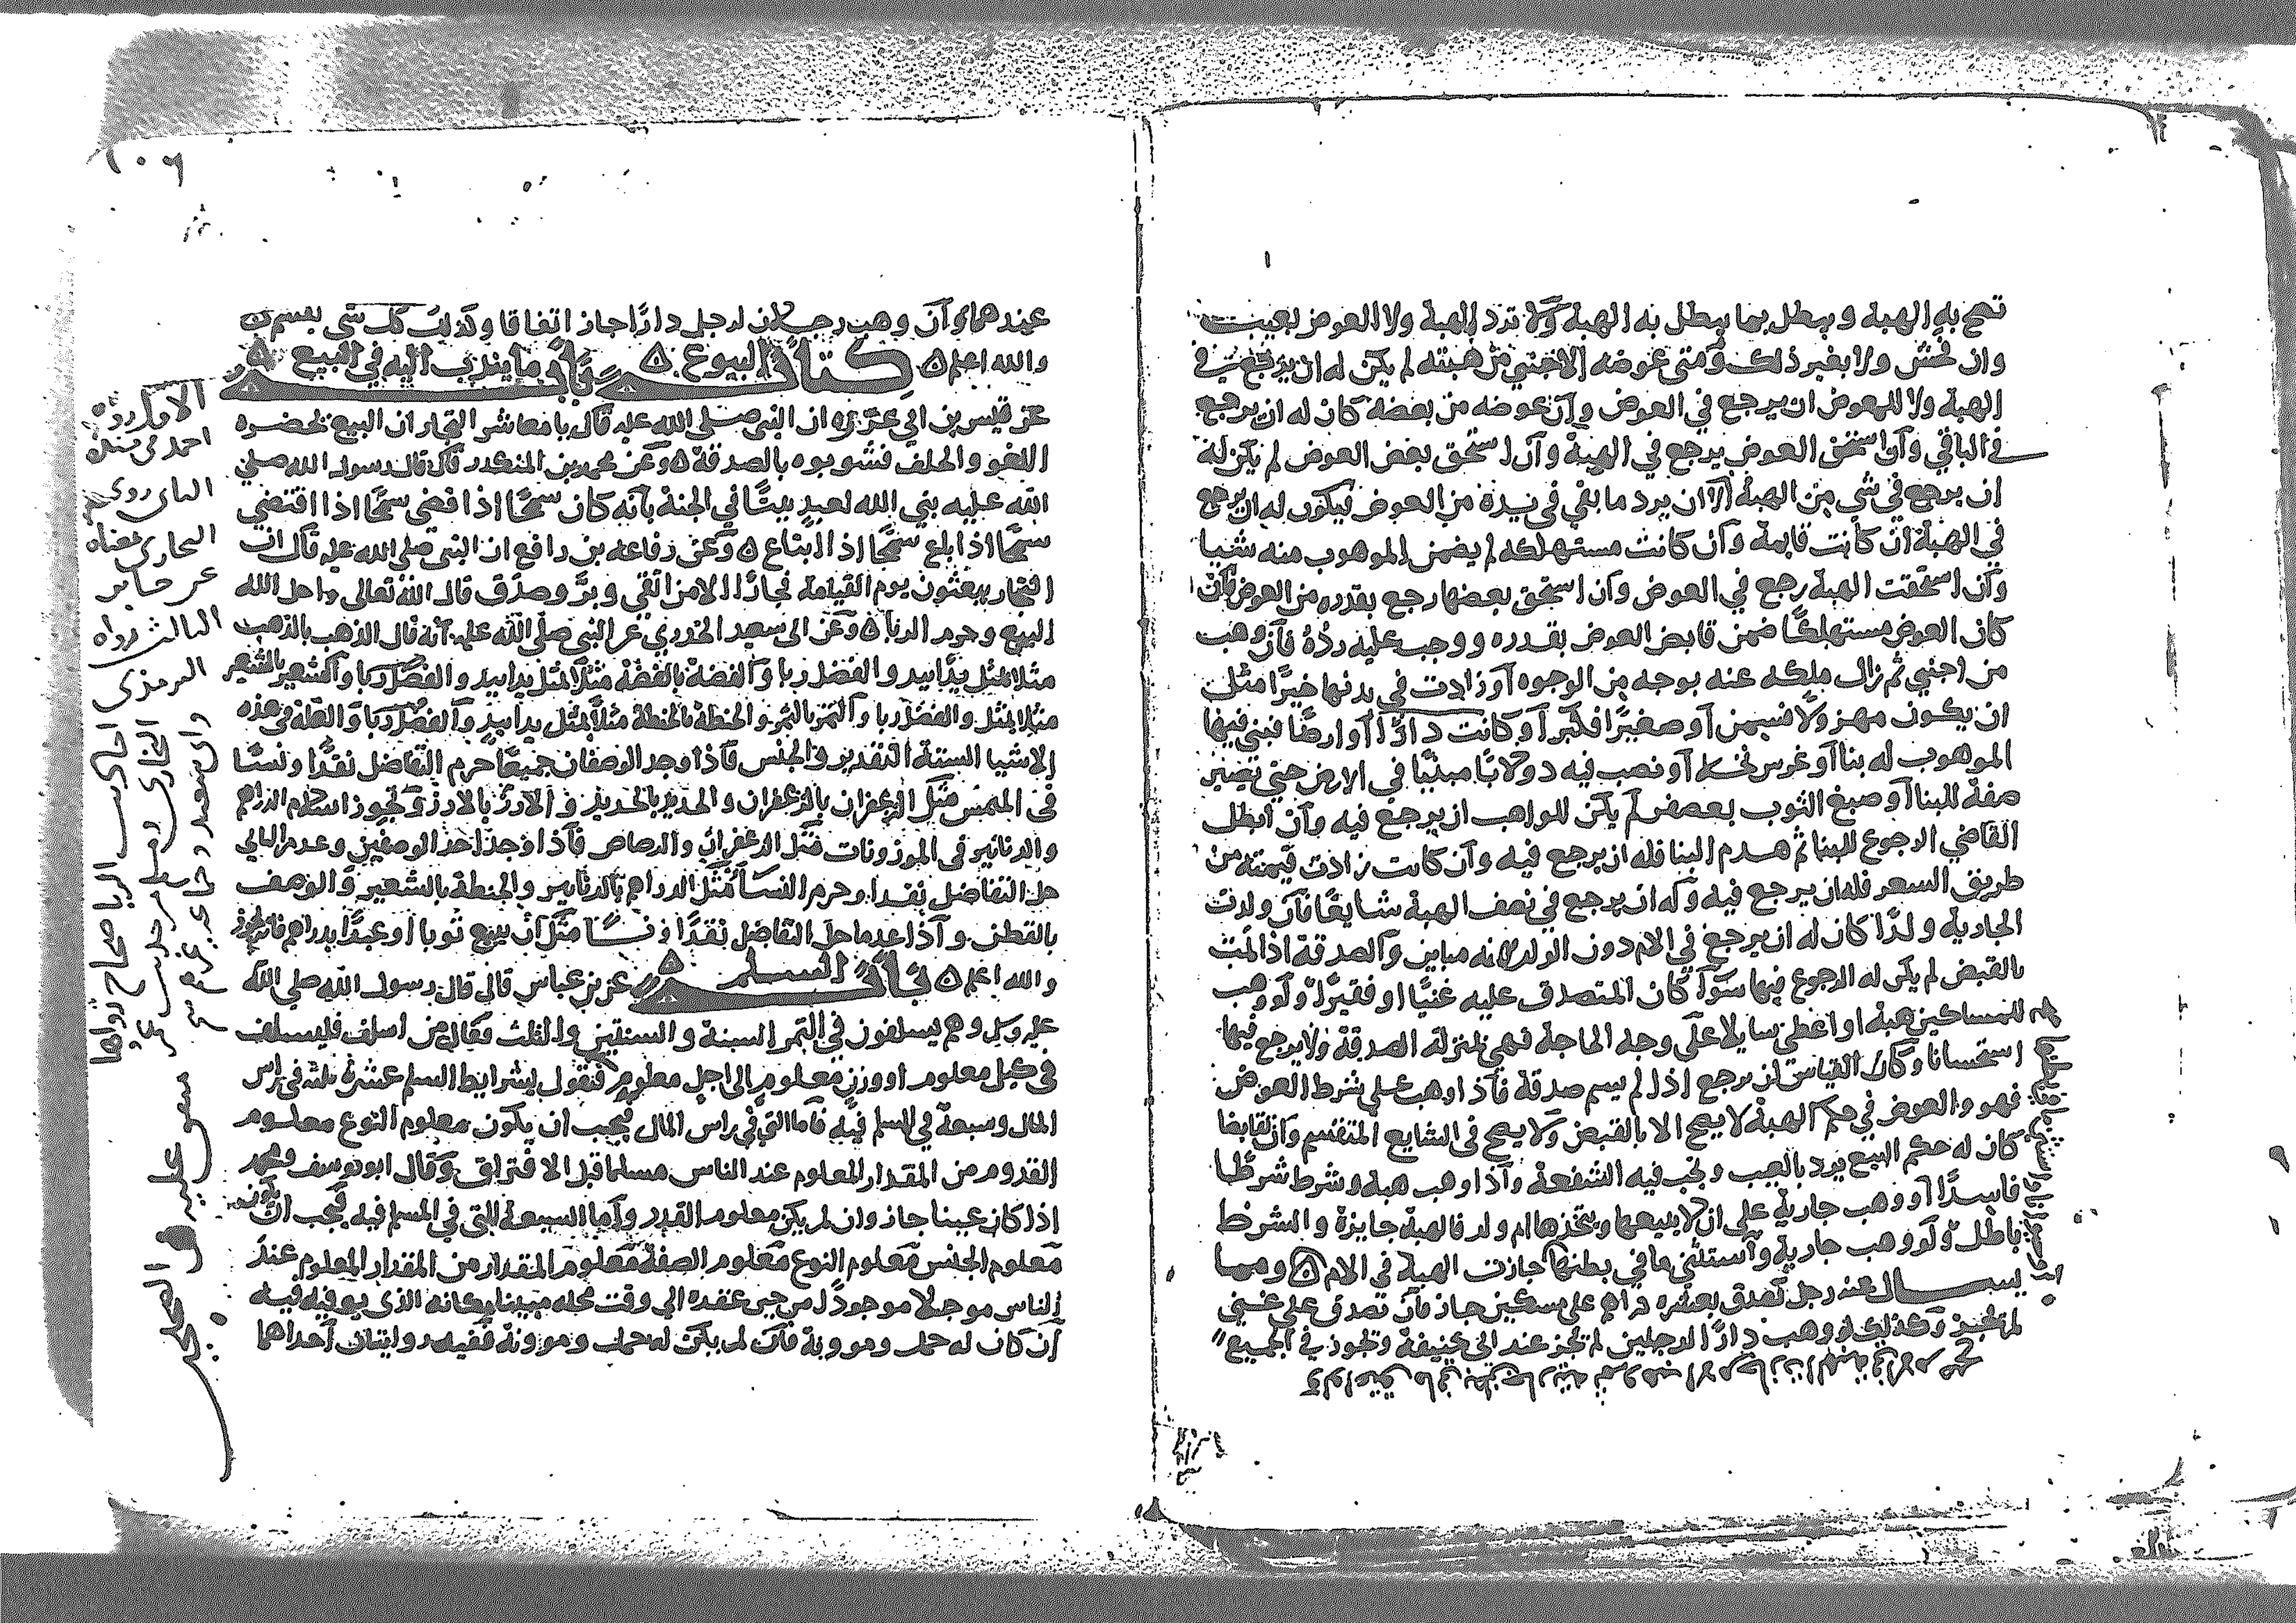 تصح به الهبة ويبطل بما يبطل به الهبة ولا ترد الهبة ولا العوض بعيب
وان فحش ولا بغير ذلك ومتى عوضه الاجنبي من هبته لم يكن له ان يرجع في
الهبة ولا للمعوض ان يرجع في العوض وان عوضه من بعضه كان له ان يرجع
في الباقي وان استحق العوض يرجع في الهبة وان استحق بعض العوض لم يكن له
ان يرجع في شي من الهبة الا ان يرد ما بقي في يده من العوض فيكون له ان يرجع
في الهبة ان كانت قايمة وان كانت مستهلكه لم يضمن الموهوب منه شيا
وان استحقت الهبة رجع في العوض وان استحق بعضها رجع بقدره من العوض فان
كان العوض مستهلكا ضمن قابض العوض بقدره ووجب عليه رده فان وهب
من اجنبي ثم زال ملكه عنه بوجه من الوجوه او زادت في بدنها خيرا مثل
ان يكون مهزولا فسمن او صغيرا فكبر او كانت دارا او ارضا فبنى فيها
الموهوب له بنا او غرس نخلا او نصب فيه دولابا مبنيا في الارض حتى تصير
صفة للبنا او صبغ الثوب بعصفر لم يكن للواهب ان يرجع فيه وان ابطل
القاضي الرجوع للبنا ثم هدم البنا فله ان يرجع فيه وان كانت زادت قيمته من
طريق السعر فله ان يرجع فيه وله ان يرجع في نصف الهبة شايعا فان ولدت
الجارية ولدا كان له ان يرجع في الام دون الولد لانه مباين والصدقة اذا تمت
بالقبض لم يكن له الرجوع فيها سوا كان المتصدق عليه غنيا او فقيرا ولو وهب
للمساكين هبة او اعطى سايلا على وجه الحاجة فهي بمنزلة الصدقة ولا يرجع فيها
استحسانا وكان القياس ان يرجع اذا لم يسم صدقة فاذا وهب على شرط العوض
فهو والعوض في حكم الهبة لا يصح الا بالقبض ولا يصح في الشايع المنقسم وان تقابضا
كان له حكم البيع يرد بالعيب وتجب فيه الشفعة واذا وهب هبة وشرط شرطا
فاسدا او وهب جارية على ان لا يبيعها ويتخذها ام ولد فالهبة جايزة والشرط
باطل ولو وهب جارية واستثنى ما في بطنها جازت الهبة في الام ومما
يسال عنه رجل تصدق بعشره دراهم على مسكين جاز فان تصدق على غني
لم تجز وكذلك لو وهب دارا لرجلين لم تجز عند ابي حنيفة وتجوز في الجميع
١٠٦
عندهما وان وهب رجلان لرجل دارا جاز اتفاقا وكذلك كل شي يقسم
والله اعلم كتاب البيوع باب ما يندب اليه في البيع
عن قيس بن ابي غرزه ان النبي صلى الله عليه قال يا معاشر التجار ان البيع يحضره
اللغو والحلف فشوبوه بالصدقة وعن محمد بن المنكدر قال قال رسول الله صلى
الله عليه بنى الله لعبد بيتا في الجنة بانه كان سمحا اذا قضى سمحا اذا اقتضى
سمحا اذا باع سمحا اذا ابتاع وعن رفاعه بن رافع ان النبي صلى الله عليه قال ان
التجار يبعثون يوم القيامة فجارا الا من اتقى وبر وصدق قال الله تعالى واحل الله
البيع وحرم الربا وعن ابي سعيد الخدري عن النبي صلى الله عليه انه قال الذهب بالذهب
مثلا بمثل يدا بيد والفضل ربا والفضة بالفضة مثلا بمثل يدا بيد والفضل ربا والشعير بالشعير
مثلا بمثل والفضل ربا والتمر بالتمر والحنطة بالحنطة مثلا بمثل يدا بيد والفضل ربا والعلة في هذه
الاشيا الستة التقدير والجنس فاذا وجد الوصفان جميعا حرم التفاضل نقدا ونسا
مثل الزعفران بالزعفران والحديد بالحديد والارز بالارز وتجوز اسلام الدراهم
والدنانير في الموزونات مثل الزعفران والرصاص فاذا وجد احد الوصفين وعدم الثاني
حل التفاضل نقدا وحرم النسا مثل الدراهم بالدنانير والحنطة بالشعير والوصف
بالقطن واذا عدما حل التفاضل نقدا ونسا مثل ان يبيع ثوبا او عبدا بدراهم فانه يجوز
والله اعلم باب السلم عن بن عباس قال قال رسول الله صلى الله
عليه وهم يسلفون في التمر السنة والسنتين والثلث فقال من اسلف فليسلف
في كيل معلوم او وزن معلوم الى اجل معلوم فنقول بشرايط السلم عشرة ثلثه في راس
المال وسبعة في المسلم فيه فاما التي في راس المال فيجب ان يكون معلوم النوع معلوم
القدر ومن المقدار المعلوم عند الناس مسلما قبل الافتراق وقال ابو يوسف ومحمد
اذا كان عينا جاز وان لم يكن معلوم القدر واما السبعة التي في المسلم فيه فيجب ان يكون
معلوم الجنس معلوم النوع معلوم الصفة معلوم المقدار من المقدار المعلوم عند
الناس موجلا موجودا من حين عقده الى وقت محله مبينا مكانه الذي يوفيه فيه
ان كان له حمل وموونة فان لم يكن له حمل وموونة ففيه روايتان احداهما
الاول رواه
احمد في مسنده
الثاني روى
البخاري معناه
عن جابر
الثالث رواه
الترمذي